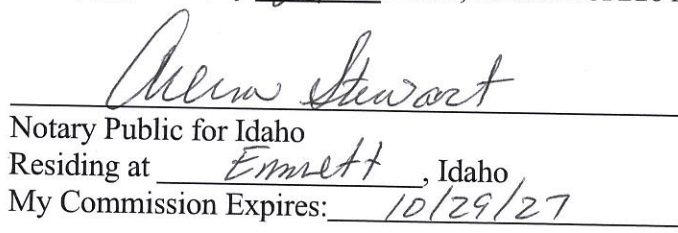 Stewart
Notary Public for Idaho
Residing at Emmett, Idaho
My Commission Expires: 10/29/27